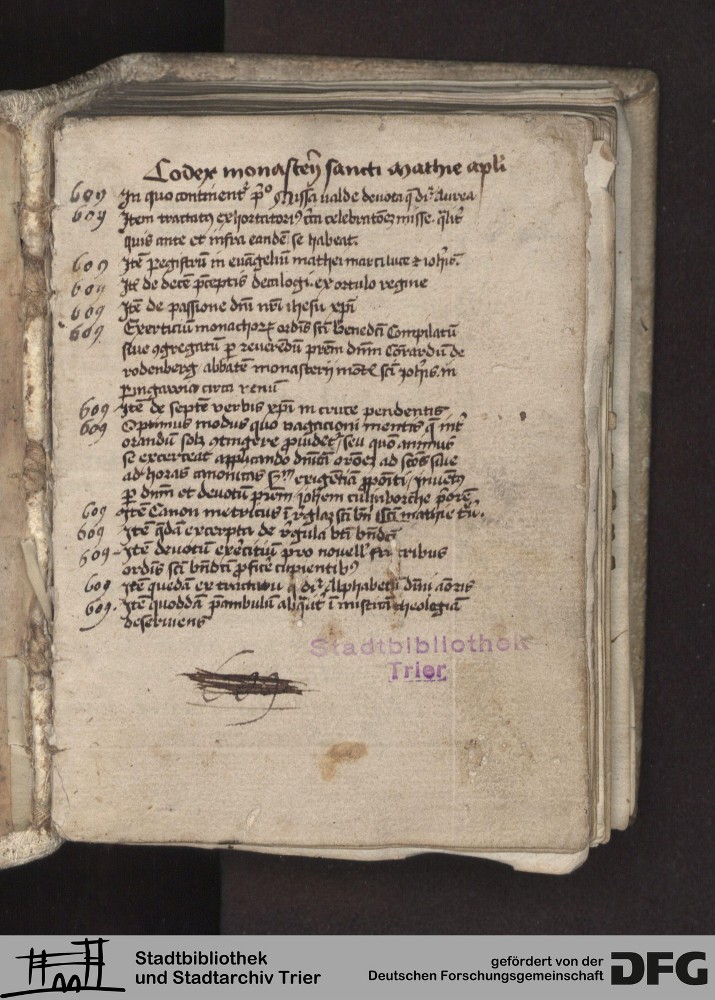 Codex monasterij sancti Mathie apli
609 In quo continent᷑ p̄o Missa valde deuota q̄ dr̄ Aurea
609 Item tractatꝰ exhortatoriꝰ celebratōeȝ misse. qlit᷑
quis ante et infra eandē se habeat.
609 Itē registrum in euāgeliū mathei marci luce ⁊ ioh̄is.
609 Itē de decē p̄ceptis decalogi. ex ortulo regine
609 Itē de passione dn̄i nr̄i ihesu xp̄i
609 Exerticiū monachoꝝ ordīs sc̄i Benedc̄i Compilatū
siue ↄgregatū ꝑ reuerēdū prēm dn̄m Conrardū de
rodenberg abbatē monasterij mōt̄ sc̄i ioh̄is in
ringawia circa renū
609 Itē de septē verbis xp̄i in cruce pendentis
609 Optimus modus quo vagacioni mentis q̄ int᷑
orandū solȝ ↄtingere prouidet᷑, seu quō animus
se exerceat applicando dn̄icā orōeȝ ad sc̄os siue
ad horas canonicas exigētiā ꝓpōiti, inuētꝰ
ꝑ dn̄m et deuotū prēm ioh̄em priorē
609 Itē Canon metricus ī r̄glaȝ sc̄i bn̄ mathie
609 Itē q̄dā excerpta de r̄gula bt̄i bn̄dc̄i
609 Itē deuotū exercitiū pro nouell' fratribus
ordīs sc̄i bn̄dc̄i ꝓficē cupientibꝰ
609 Itē quedā ex tractatu q̄ dr̄ Alphabetū diuī aōris
609. Itē quoddā p̄ambulū aliq̄lit᷑ ī misticā theologiā
deseruiens
Stadtbibliothek
Trier
609
Stadtbibliothek
und Stadtarchiv Trier
gefördert von der
Deutschen Forschungsgemeinschaft
DFG